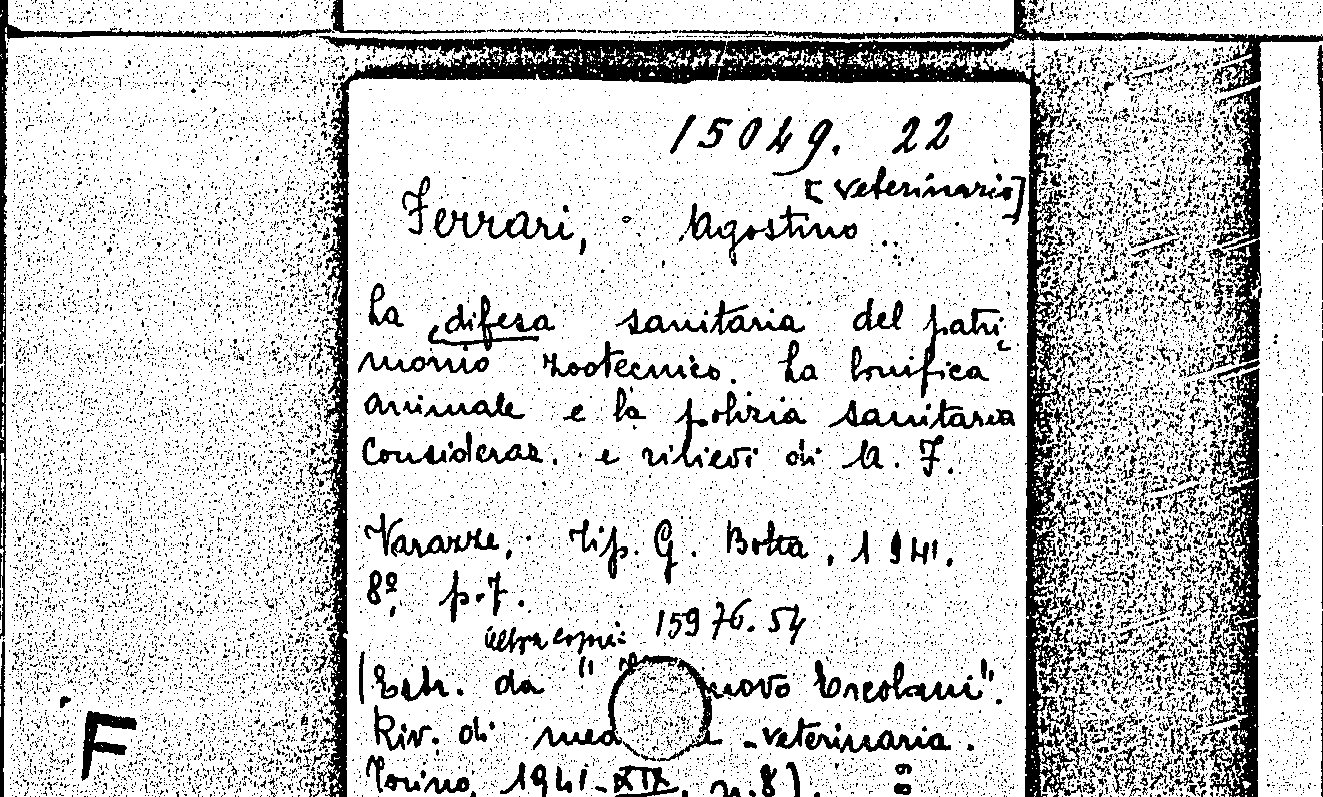 15049. 22
[veterinario]
Ferrari, Agostino
La difesa sanitaria del patri
monio zootecnico. La bonifica
animale e la polizia sanitaria
Consideraz. e rilievi di A. F.
Varazze, Tip. G. Botta, 1941.
8º, p. 7.
Altra copia: 15976. 54
(Estr. da " nuovo Ercolani".
Riv. di veterinaria.
F
Torino, 1941-XIX, n. 8).